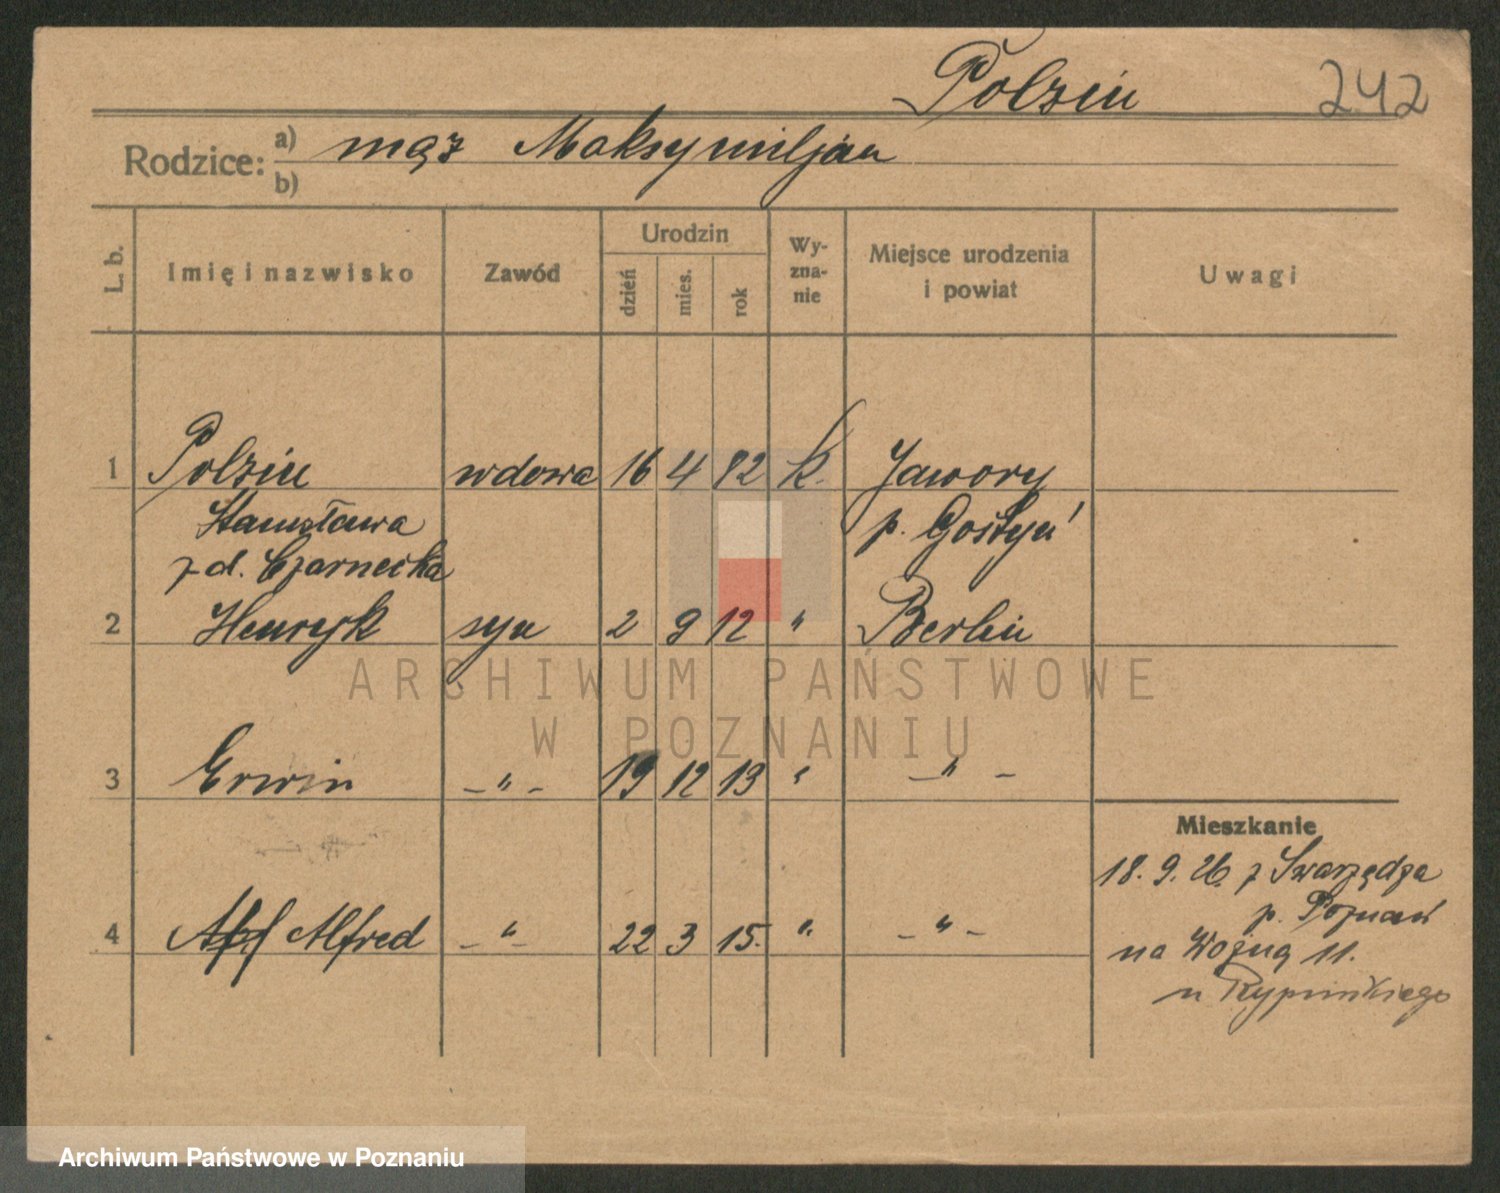 Polzin 242
Rodzice: a) mąż Maksymiljan
b)
L. b. Imię i nazwisko Zawód Urodzin dzień mies. rok Wyznanie Miejsce urodzenia i powiat Uwagi
1 Polzin wdowa 16 4 82 k. Jawory
Stanisława p. Gostyń
z d. Czarnecka
2 Henryk syn 2 9 12 " Berlin
ARCHIWUM PAŃSTWOWE
W POZNANIU
3 Erwin -"- 19 12 13 " -"-
Mieszkanie
18. 9. 26. z Swarzędza
p. Poznań
4 Alfred -"- 22 3 15. " -"-
na Woźną 11.
u Rypińskiego
Archiwum Państwowe w Poznaniu